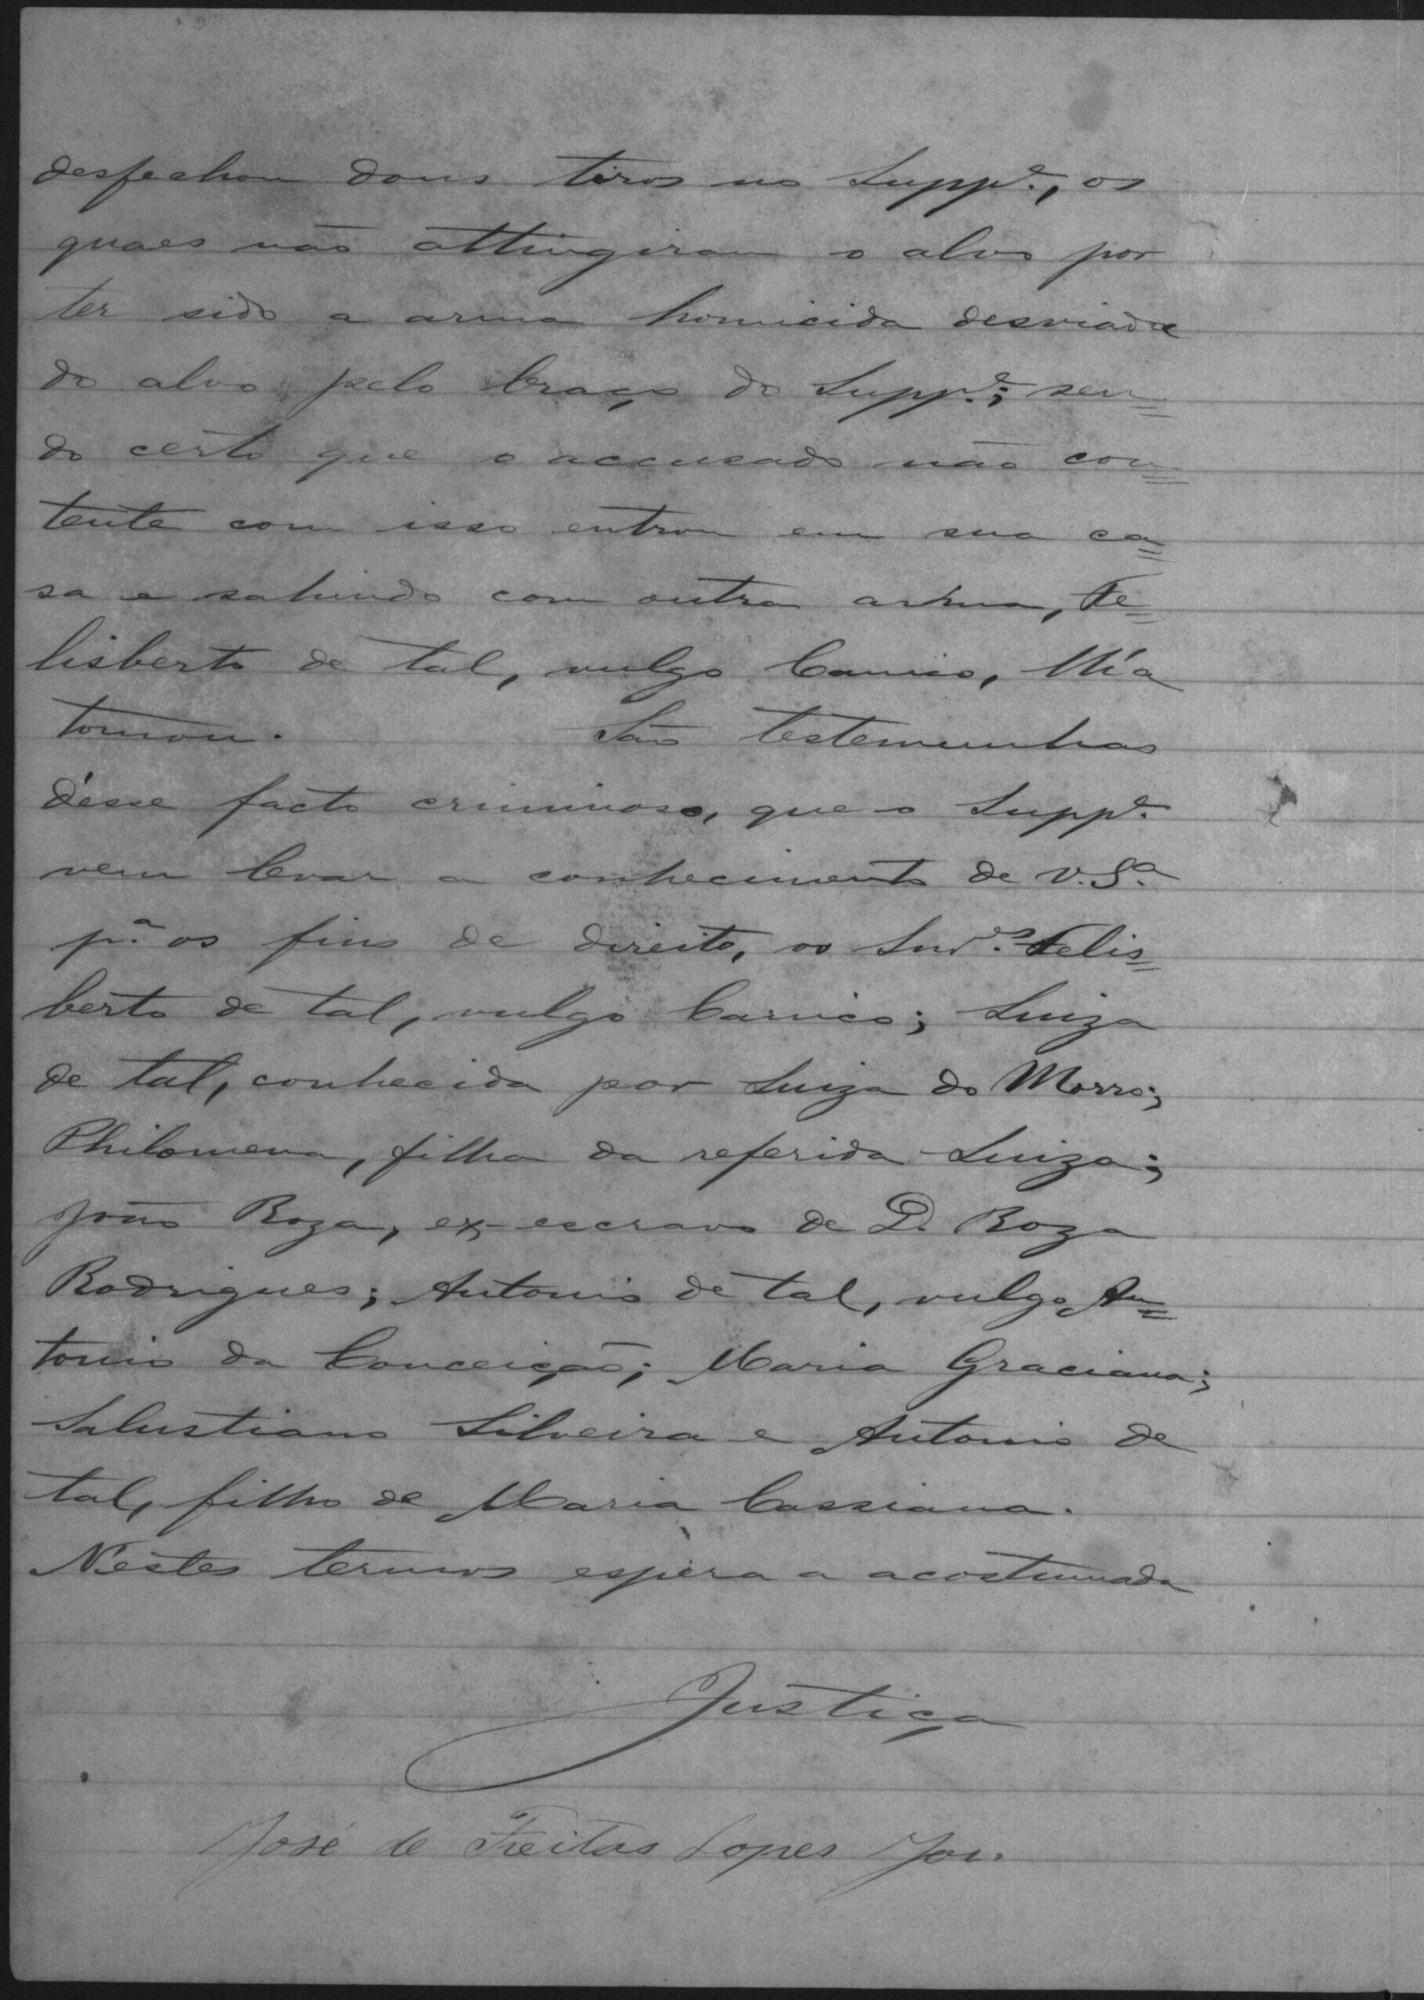 desfechou dous tiros no Supp.e, os
quaes não attingiram o alvo por
ter sido a arma homicida desviada
do alvo pelo braço do Supp.e; sen=
do certo que o accusado não con=
tente com isso entrou em sua ca=
sa e sahindo com outra arma, Fe=
lisberto de tal, vulgo Carrico, lh'a
tomou. São testemunhas
d'esse facto criminoso, que o Supp.e
vem levar a conhecimento de V. S.a
p.a os fins de direito, os Snr.es Felis=
berto de tal, vulgo Carrico; Luiza
de tal, conhecida por Luiza do Morro;
Philomena, filha da referida Luiza;
João Roza, ex-escravo de D. Roza
Rodrigues; Antonio de tal, vulgo An=
tonio da Conceição; Maria Graciana;
Salustiano Silveira e Antonio de
tal, filho de Maria Cassiana.
N'estes termos espera a acostumada
Justiça
José de Freitas Lopes